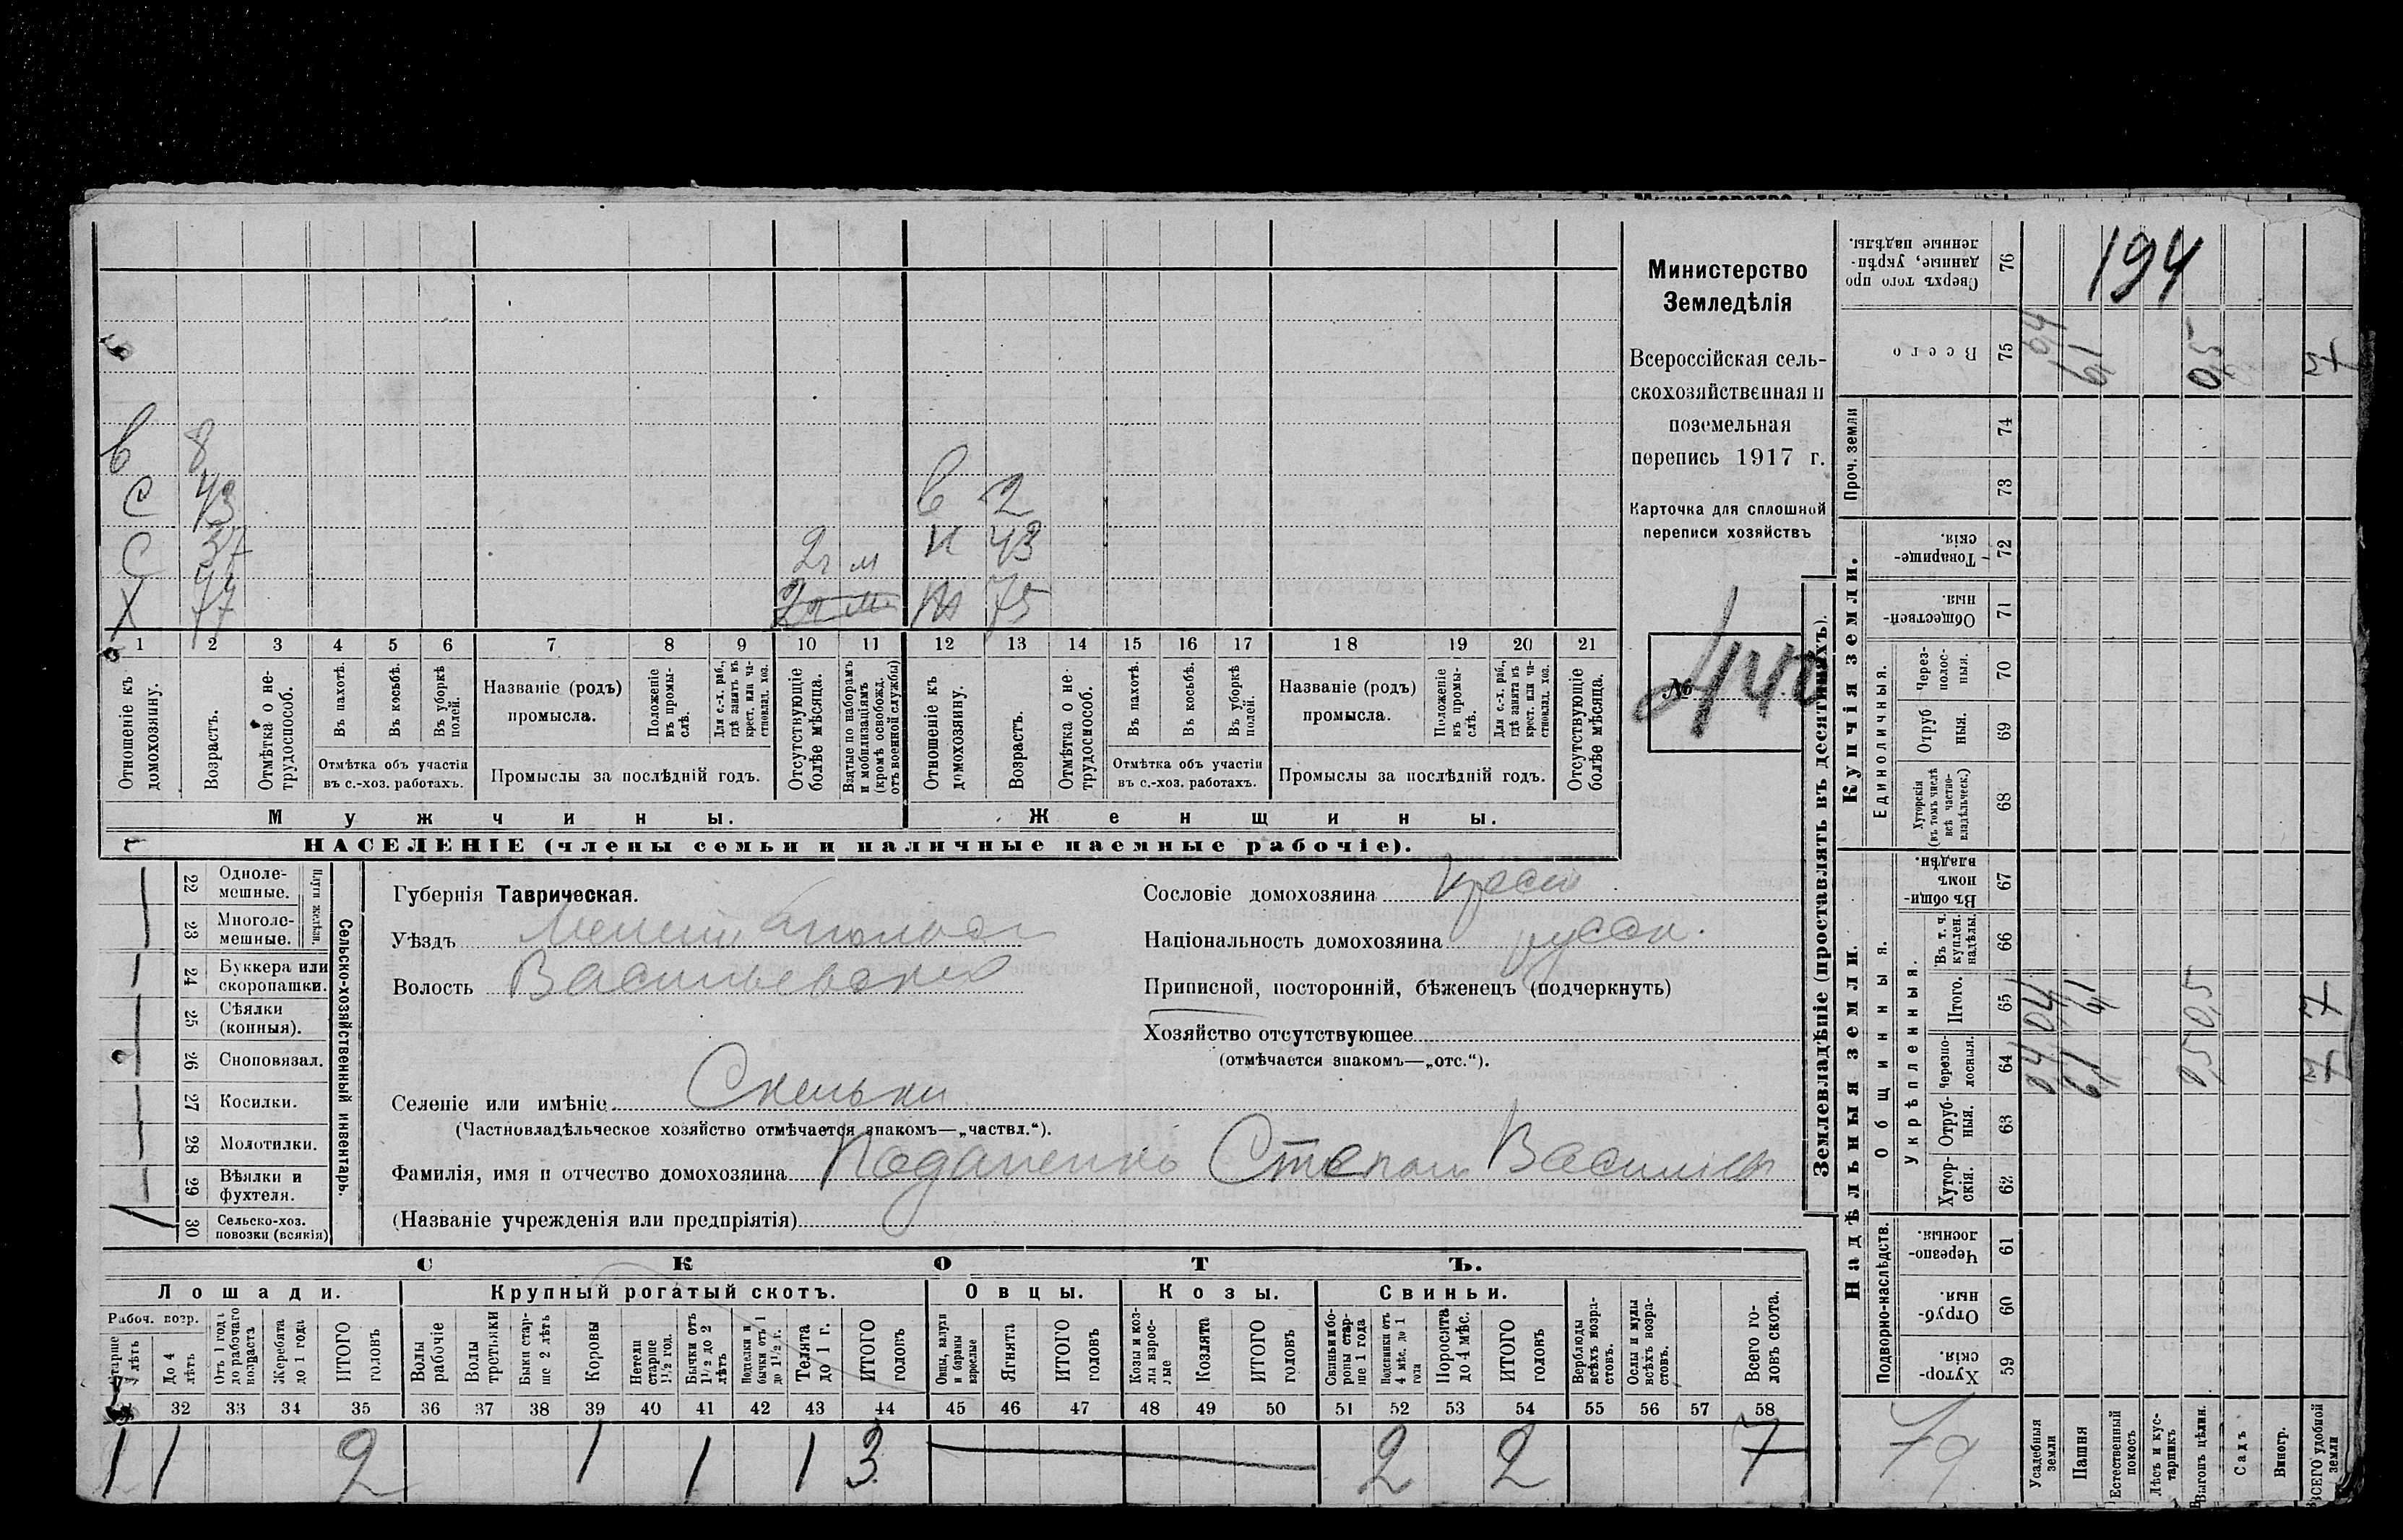 194
Министерство
Земледѣлія
Всероссійская сель-
скохозяйственная и
поземельная
перепись 1917 г.
Карточка для сплошной
переписи хозяйствъ
№ 440
в 8
С 43 в 2
С 37 2 г м н 43
Х 77 75
1 2 3 4 5 6 7 8 9 10 11 12 13 14 15 16 17 18 19 20 21
Отношеніе къ домохозяину.
Возрастъ.
Отмѣтка о не-трудоспособ.
Въ пахотѣ.
Въ косьбѣ.
Въ уборкѣ полей.
Отмѣтка объ участіи
въ с.-хоз. работахъ.
Названіе (родъ)
промысла.
Положеніе въ промы-слѣ.
Для с.-х. раб., гдѣ занятъ въ крест. или ча-стновлад. хоз.
Промыслы за послѣдній годъ.
Отсутствующіе болѣе мѣсяца.
Взятые по наборамъ и мобилизаціямъ (кромѣ освобожд. отъ военной службы)
Отношеніе къ домохозяину.
Возрастъ.
Отмѣтка о не-трудоспособ.
Въ пахотѣ.
Въ косьбѣ.
Въ уборкѣ полей.
Отмѣтка объ участіи
въ с.-хоз. работахъ.
Названіе (родъ)
промысла.
Положеніе въ промы-слѣ.
Для с.-х. раб., гдѣ занята въ крест. или ча-стновлад. хоз.
Промыслы за послѣдній годъ.
Отсутствующіе болѣе мѣсяца.
Мужчины. Женщины.
НАСЕЛЕНІЕ (члены семьи и наличные наемные рабочіе).
Сельско-хозяйственный инвентарь.
Плуги желѣзн.
22 Одноле-мешные.
23 Многоле-мешные.
24 Буккера или скоропашки.
25 Сѣялки (конныя).
26 Сноповязал.
27 Косилки.
28 Молотилки.
29 Вѣялки и фухтеля.
30 Сельско-хоз. повозки (всякія)
Губернія Таврическая.
Уѣздъ Мелитопольск
Волость Васильевская
Селеніе или имѣніе Скельки
(Частновладѣльческое хозяйство отмѣчается знакомъ—„частвл.“).
Фамилія, имя и отчество домохозяина Степан Василіев
(Названіе учрежденія или предпріятія)
Сословіе домохозяина крест
Національность домохозяина русск.
Приписной, посторонній, бѣженецъ (подчеркнуть)
Хозяйство отсутствующее
(отмѣчается знакомъ—„отс.“).
СКОТЪ.
Лошади. Крупный рогатый скотъ. Овцы. Козы. Свиньи.
Рабоч. возр.
Старше 4 лѣтъ
До 4 лѣтъ
Отъ 1 года до рабочаго возраста
Жеребята до 1 года
ИТОГО головъ
Волы рабочіе
Волы гостьяки
Быки стар-ше 2 лѣтъ
Коровы
Нетели старше 1½ год.
Бычки отъ 1½ до 2 лѣтъ
Подтелки и бычки отъ 1 до 1½ г.
Телята до 1 г.
ИТОГО головъ
Овцы, валухи и бараны взрослые
Ягнята
ИТОГО головъ
Козы и коз-лы взрос-лые
Козлята
ИТОГО головъ
Свиньи и бо-ровы стар-ше 1 года
Подсвинки отъ 4 мѣс. до 1 года
Поросята до 4 мѣс.
ИТОГО головъ
Верблюды всѣхъ возра-стовъ.
Ослы и мулы всѣхъ возра-стовъ.
Всего го-ловъ скота.
32 33 34 35 36 37 38 39 40 41 42 43 44 45 46 47 48 49 50 51 52 53 54 55 56 57 58
1 1 2 1 1 1 3 2 2 7
Землевладѣніе (проставлять въ десятинахъ).
Надѣльныя земли.
Купчія земли.
Проч. земли
Подворно-наслѣдств.
Общинныя.
Укрѣпленныя.
Единоличныя.
76 Сверхъ того про-данные, укрѣп-ленные надѣлы.
75 Всего 04 61 05
74
73
72 Товарище-скія.
71 Обществен-ныя.
70 Через-полос-ныя.
69 Отруб-ныя.
68 Хуторскія (въ томъ числѣ всѣ частно-владѣльческ.)
67 Въ общи-номъ владѣн.
66 Въ т. ч. куплен. надѣлы.
65 Итого. 04 61 05 7
64 Черезпо-лосныя. 04 61 05
63 Отруб-ныя.
62 Хутор-скія.
61 Черезпо-лосныя.
60 Отруб-ныя.
59 Хутор-скія.
79
Усадебныя земли
Пашня
Естественный покосъ
Лѣсъ и кус-тарникъ
Выгонъ цѣлин.
Садъ
Виногр.
ВСЕГО удобной земли